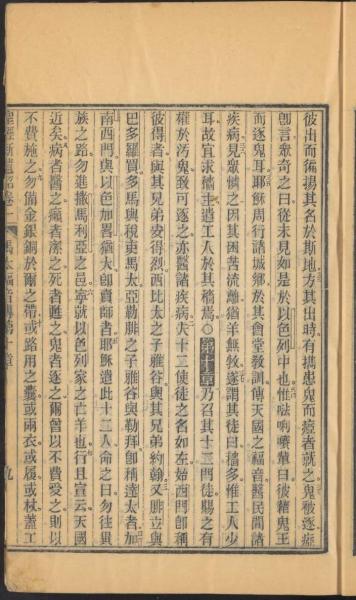 彼出而徧揚其名於斯地方其出時有攜患鬼而瘖者就之鬼被逐瘖
卽言衆奇之曰從未見如是於以色列中也惟㕸唎㘔華曰彼藉鬼王
而逐鬼耳耶穌周行諸城鄉於其會堂教訓傳天國之福音醫民間諸
疾病見衆憐之因其困苦流離猶羊無牧遂謂其徒曰穡多惟工人少
耳故宜求穡主遣工人於其穡焉〇第十章乃召其十二門徒賜之有
權於汚鬼致可逐之亦醫諸疾病夫十二使徒之名如左始西門卽稱
彼得者與其兄弟安得烈西比太之子雅谷與其兄弟約翰又腓立與
巴多羅買多馬與稅吏馬太亞勒腓之子雅谷與勒拜卽稱達太者加
南西門與以色加畧猶大卽賣師者耶穌遣此十二人命之曰勿往異
族之路勿進撒馬利亞之邑寧就以色列家之亡羊也行且宣云天國
近矣病者醫之癩者潔之死者甦之鬼者逐之爾曹以不費受之則以
不費施之勿備金銀銅於爾之帶或路用之囊或兩衣或履或杖蓋工
聖經新遺詔卷一 馬太福音傳第十章 九